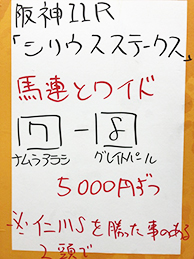 阪神11R
「シリウスステークス」
馬連とワイド
7-8
ナムラアラシ グレイトパール
5000円ずつ
※仁川Sを勝った事のある
2頭で